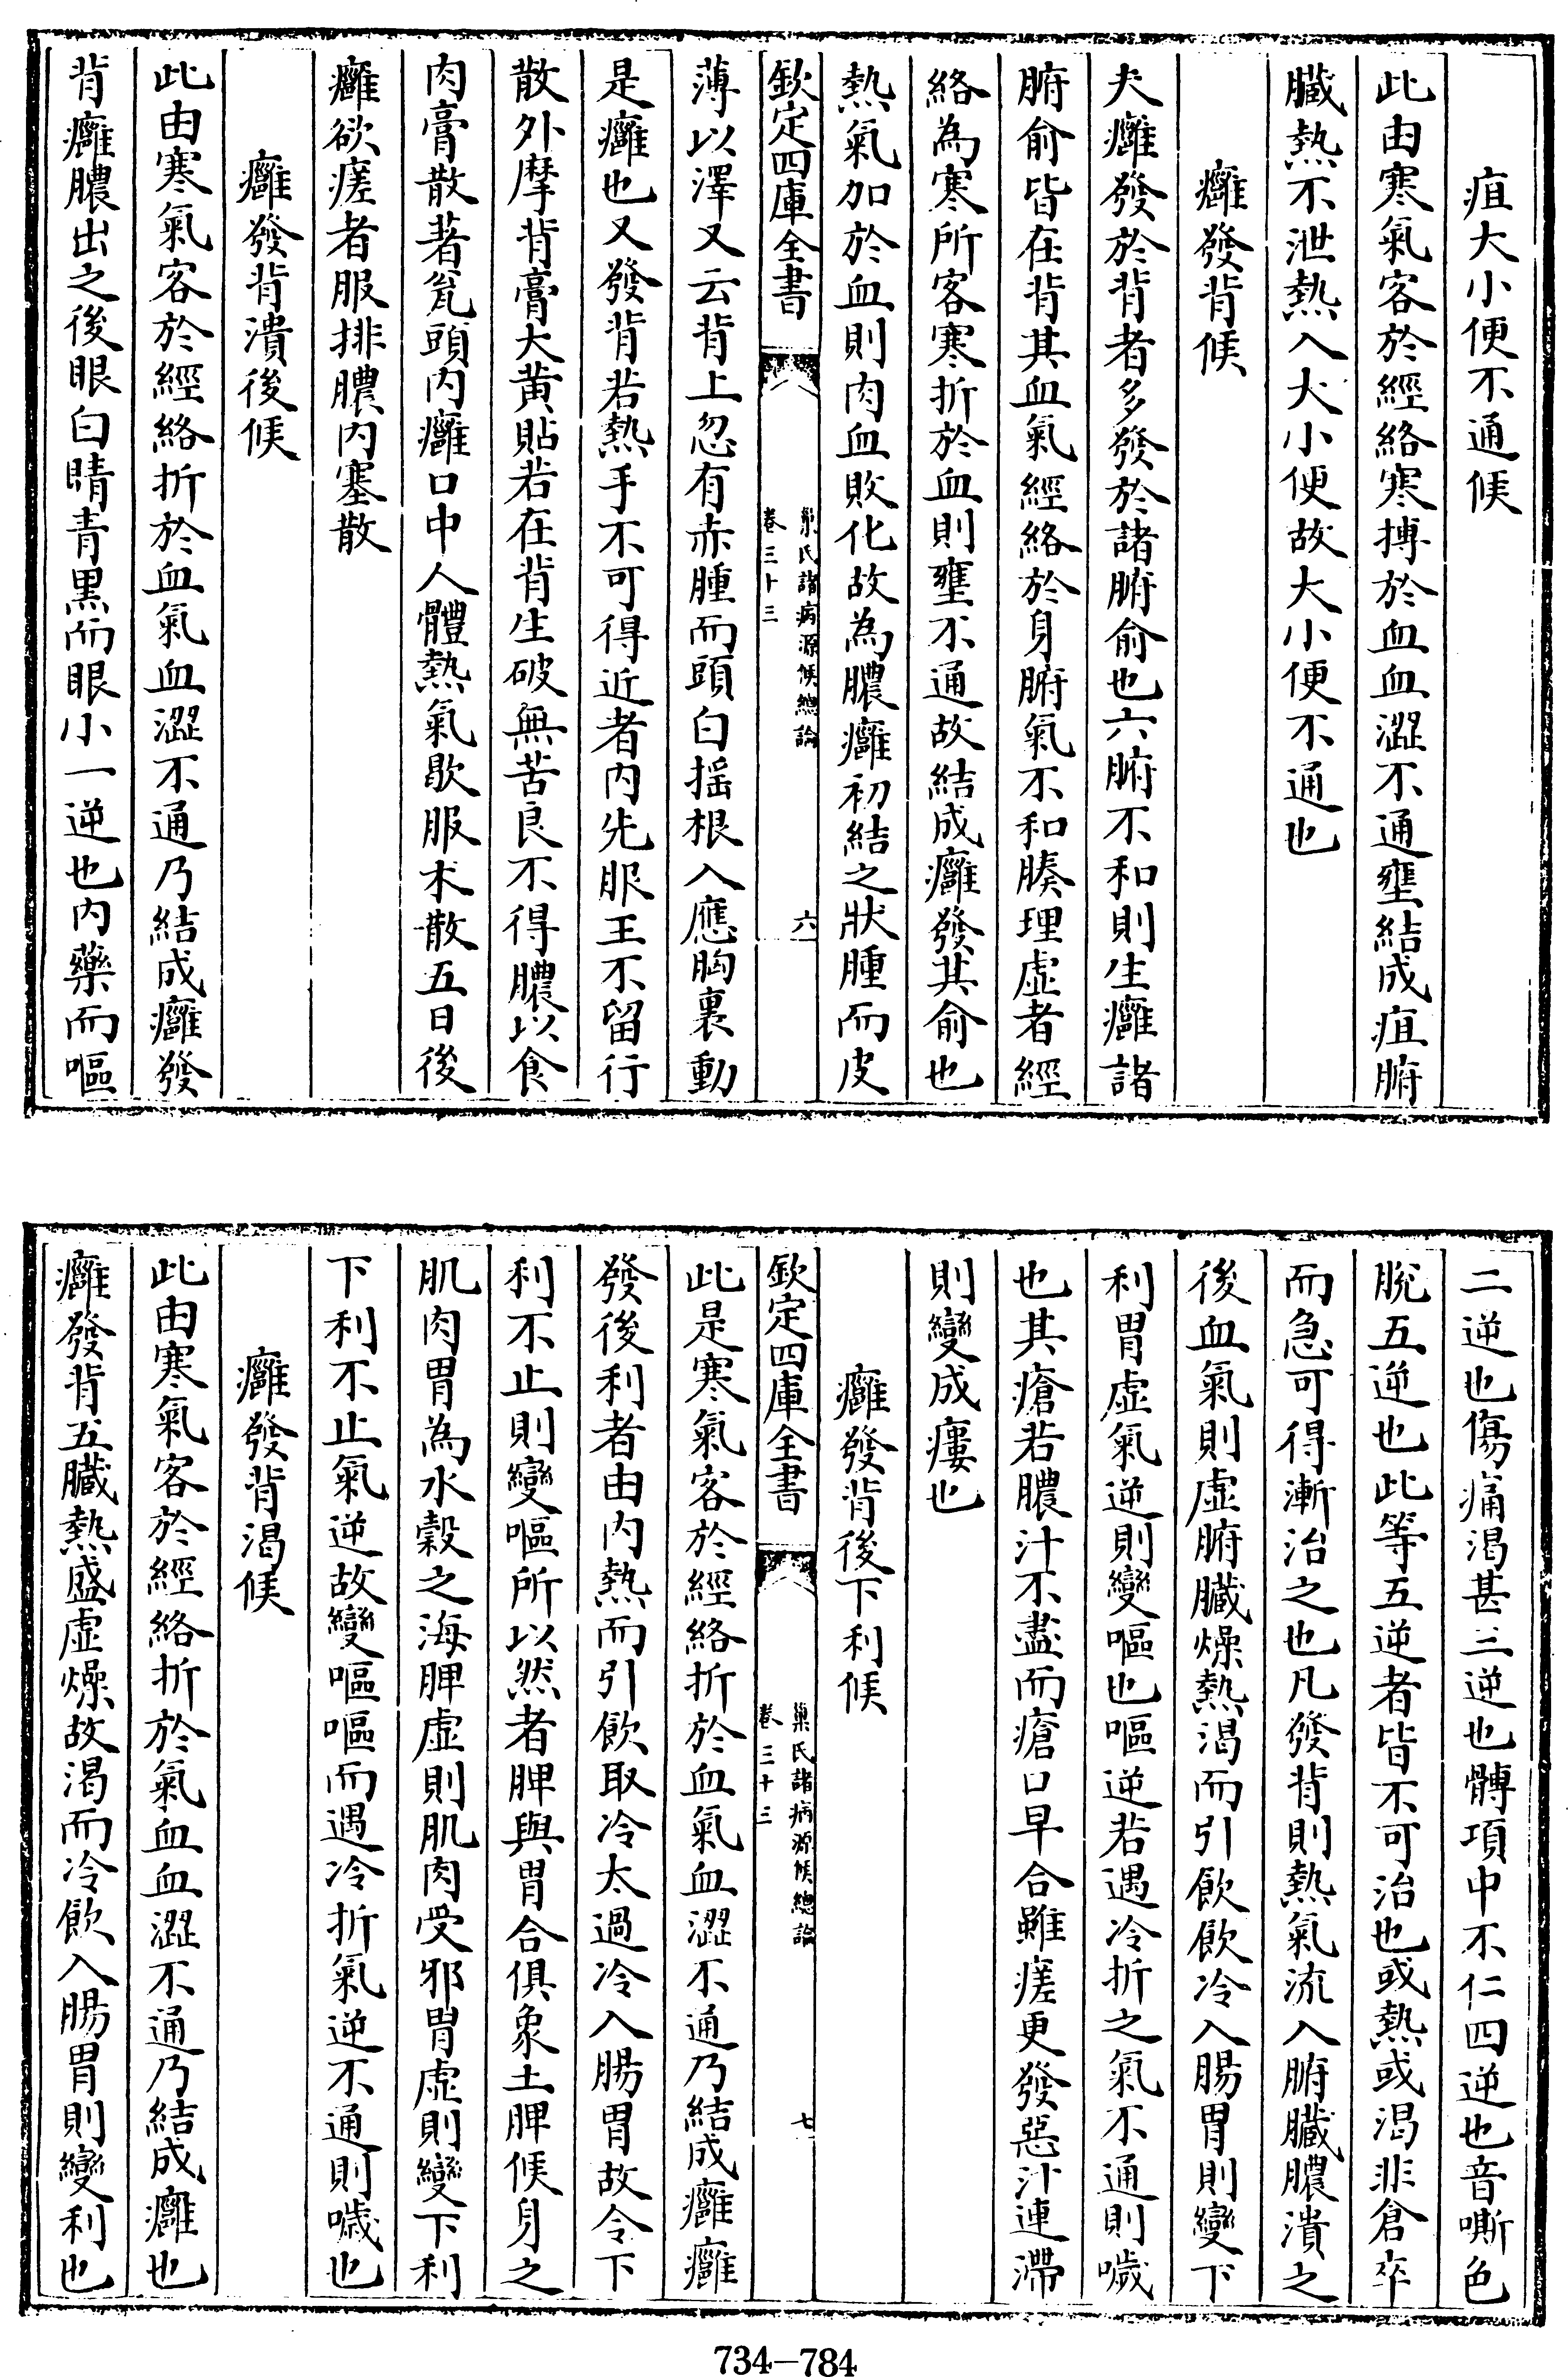 疽大小便不通候
此由寒氣客於經絡寒搏於血血澀不通壅結成疽腑
臓熱不泄熱入大小便故大小便不通也
癰發背候
夫癰發於背者多發於諸腑俞也六腑不和則生癰諸
腑俞皆在背其血氣經絡於身腑氣不和腠理虛者經
絡為寒所客寒折於血則壅不通故結成癰發其俞也
熱氣加於血則肉血敗化故為膿癰初結之狀腫而皮
欽定四庫全書
巢氏諸病源候總論
卷三十三
六
薄以澤又云背上忽有赤腫而頭白揺根入應胸裏動
是癰也又發背若熱手不可得近者内先服王不留行
散外摩背膏大黄貼若在背生破無苦良不得膿以食
肉膏散著瓮頭内癰口中人體熱氣歇服术散五日後
癰欲瘥者服排膿内塞散
癰發背潰後候
此由寒氣客於經絡折於血氣血澀不通乃結成癰發
背癰膿出之後眼白睛青黒而眼小一逆也内藥而嘔
二逆也傷痛渴甚三逆也髆項中不仁四逆也音嘶色
脱五逆也此等五逆者皆不可治也或熱或渴非倉卒
而急可得漸治之也凡發背則熱氣流入腑臓膿潰之
後血氣則虛腑臓燥熱渴而引飲飲冷入腸胃則變下
利胃虛氣逆則變嘔也嘔逆若遇冷折之氣不通則噦
也其瘡若膿汁不盡而瘡口早合雖瘥更發惡汁連滯
則變成瘻也
癰發背後下利候
欽定四庫全書
巢氏諸病源候總論
卷三十三
七
此是寒氣客於經絡折於血氣血澀不通乃結成癰癰
發後利者由内熱而引飲取冷太過冷入腸胃故令下
利不止則變嘔所以然者脾與胃合俱象土脾候身之
肌肉胃為水穀之海脾虛則肌肉受邪胃虛則變下利
下利不止氣逆故變嘔嘔而遇冷折氣逆不通則噦也
癰發背渴候
此由寒氣客於經絡折於氣血血澀不通乃結成癰也
癰發背五臓熱盛虛燥故渴而冷飲入腸胃則變利也
734—784